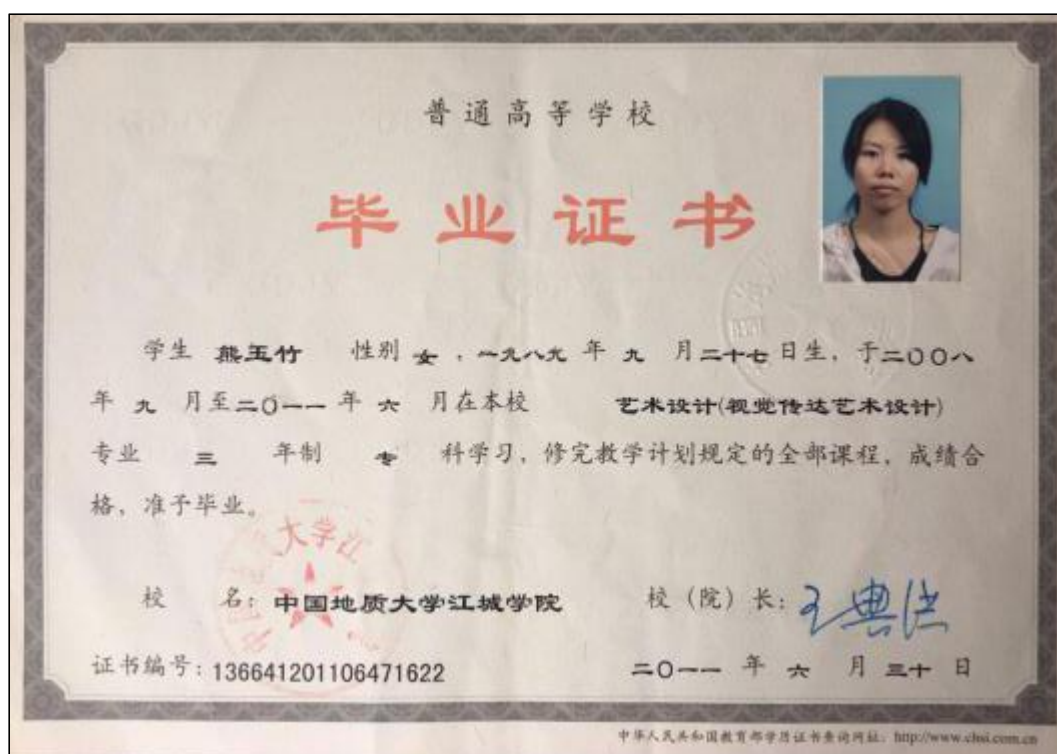 普通高等学校
毕业证书
学生 熊玉竹 性别 女，一九八九 年 九 月二十七日生，于二〇〇八
年 九 月至二〇一一 年 六 月在本校 艺术设计(视觉传达艺术设计)
专业 三 年制 专 科学习，修完教学计划规定的全部课程，成绩合
格，准予毕业。
大学江
校 名：中国地质大学江城学院 校（院）长：王典洪
证书编号：136641201106471622 二〇一一 年 六 月 三十 日
中华人民共和国教育部学历证书查询网址：http://www.chsi.com.cn